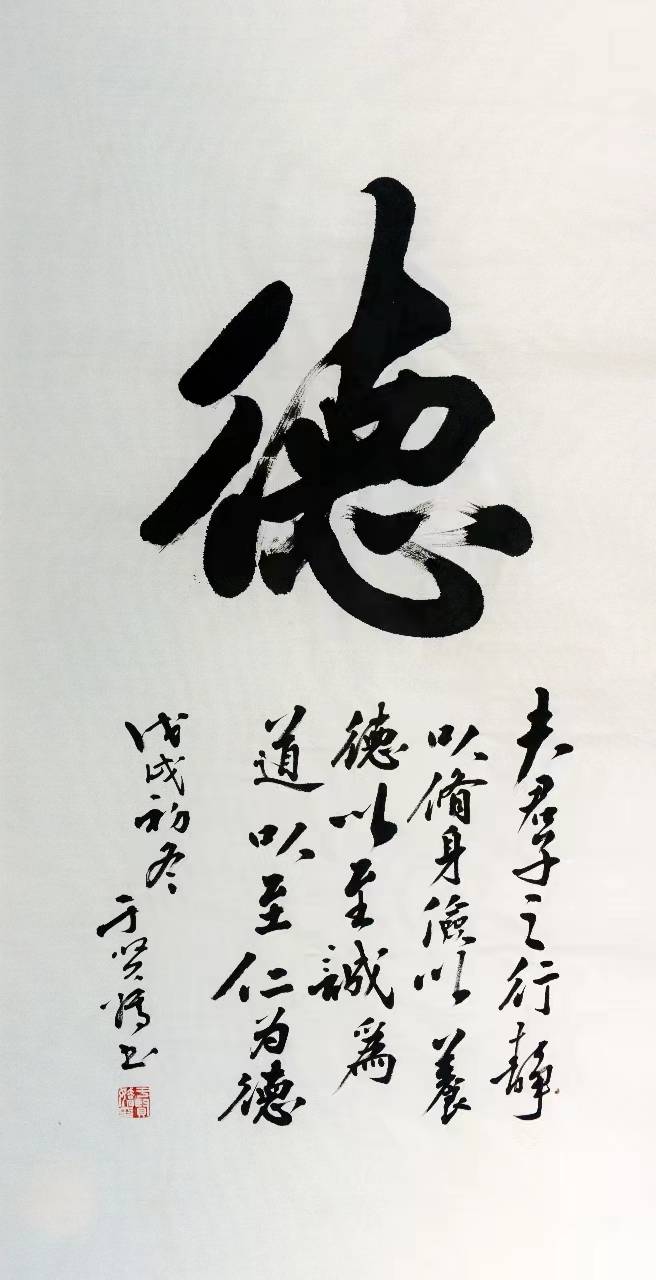 德
夫君子之行静
以脩身儉以養
德以至誠為
道以至仁为德
戊戌初冬
于贤
书